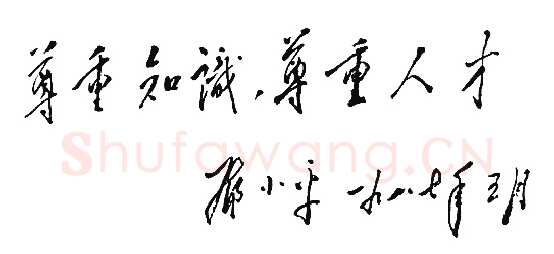 尊重知識,尊重人才
Shufawang.CN
鄧小平 一九八七年三月